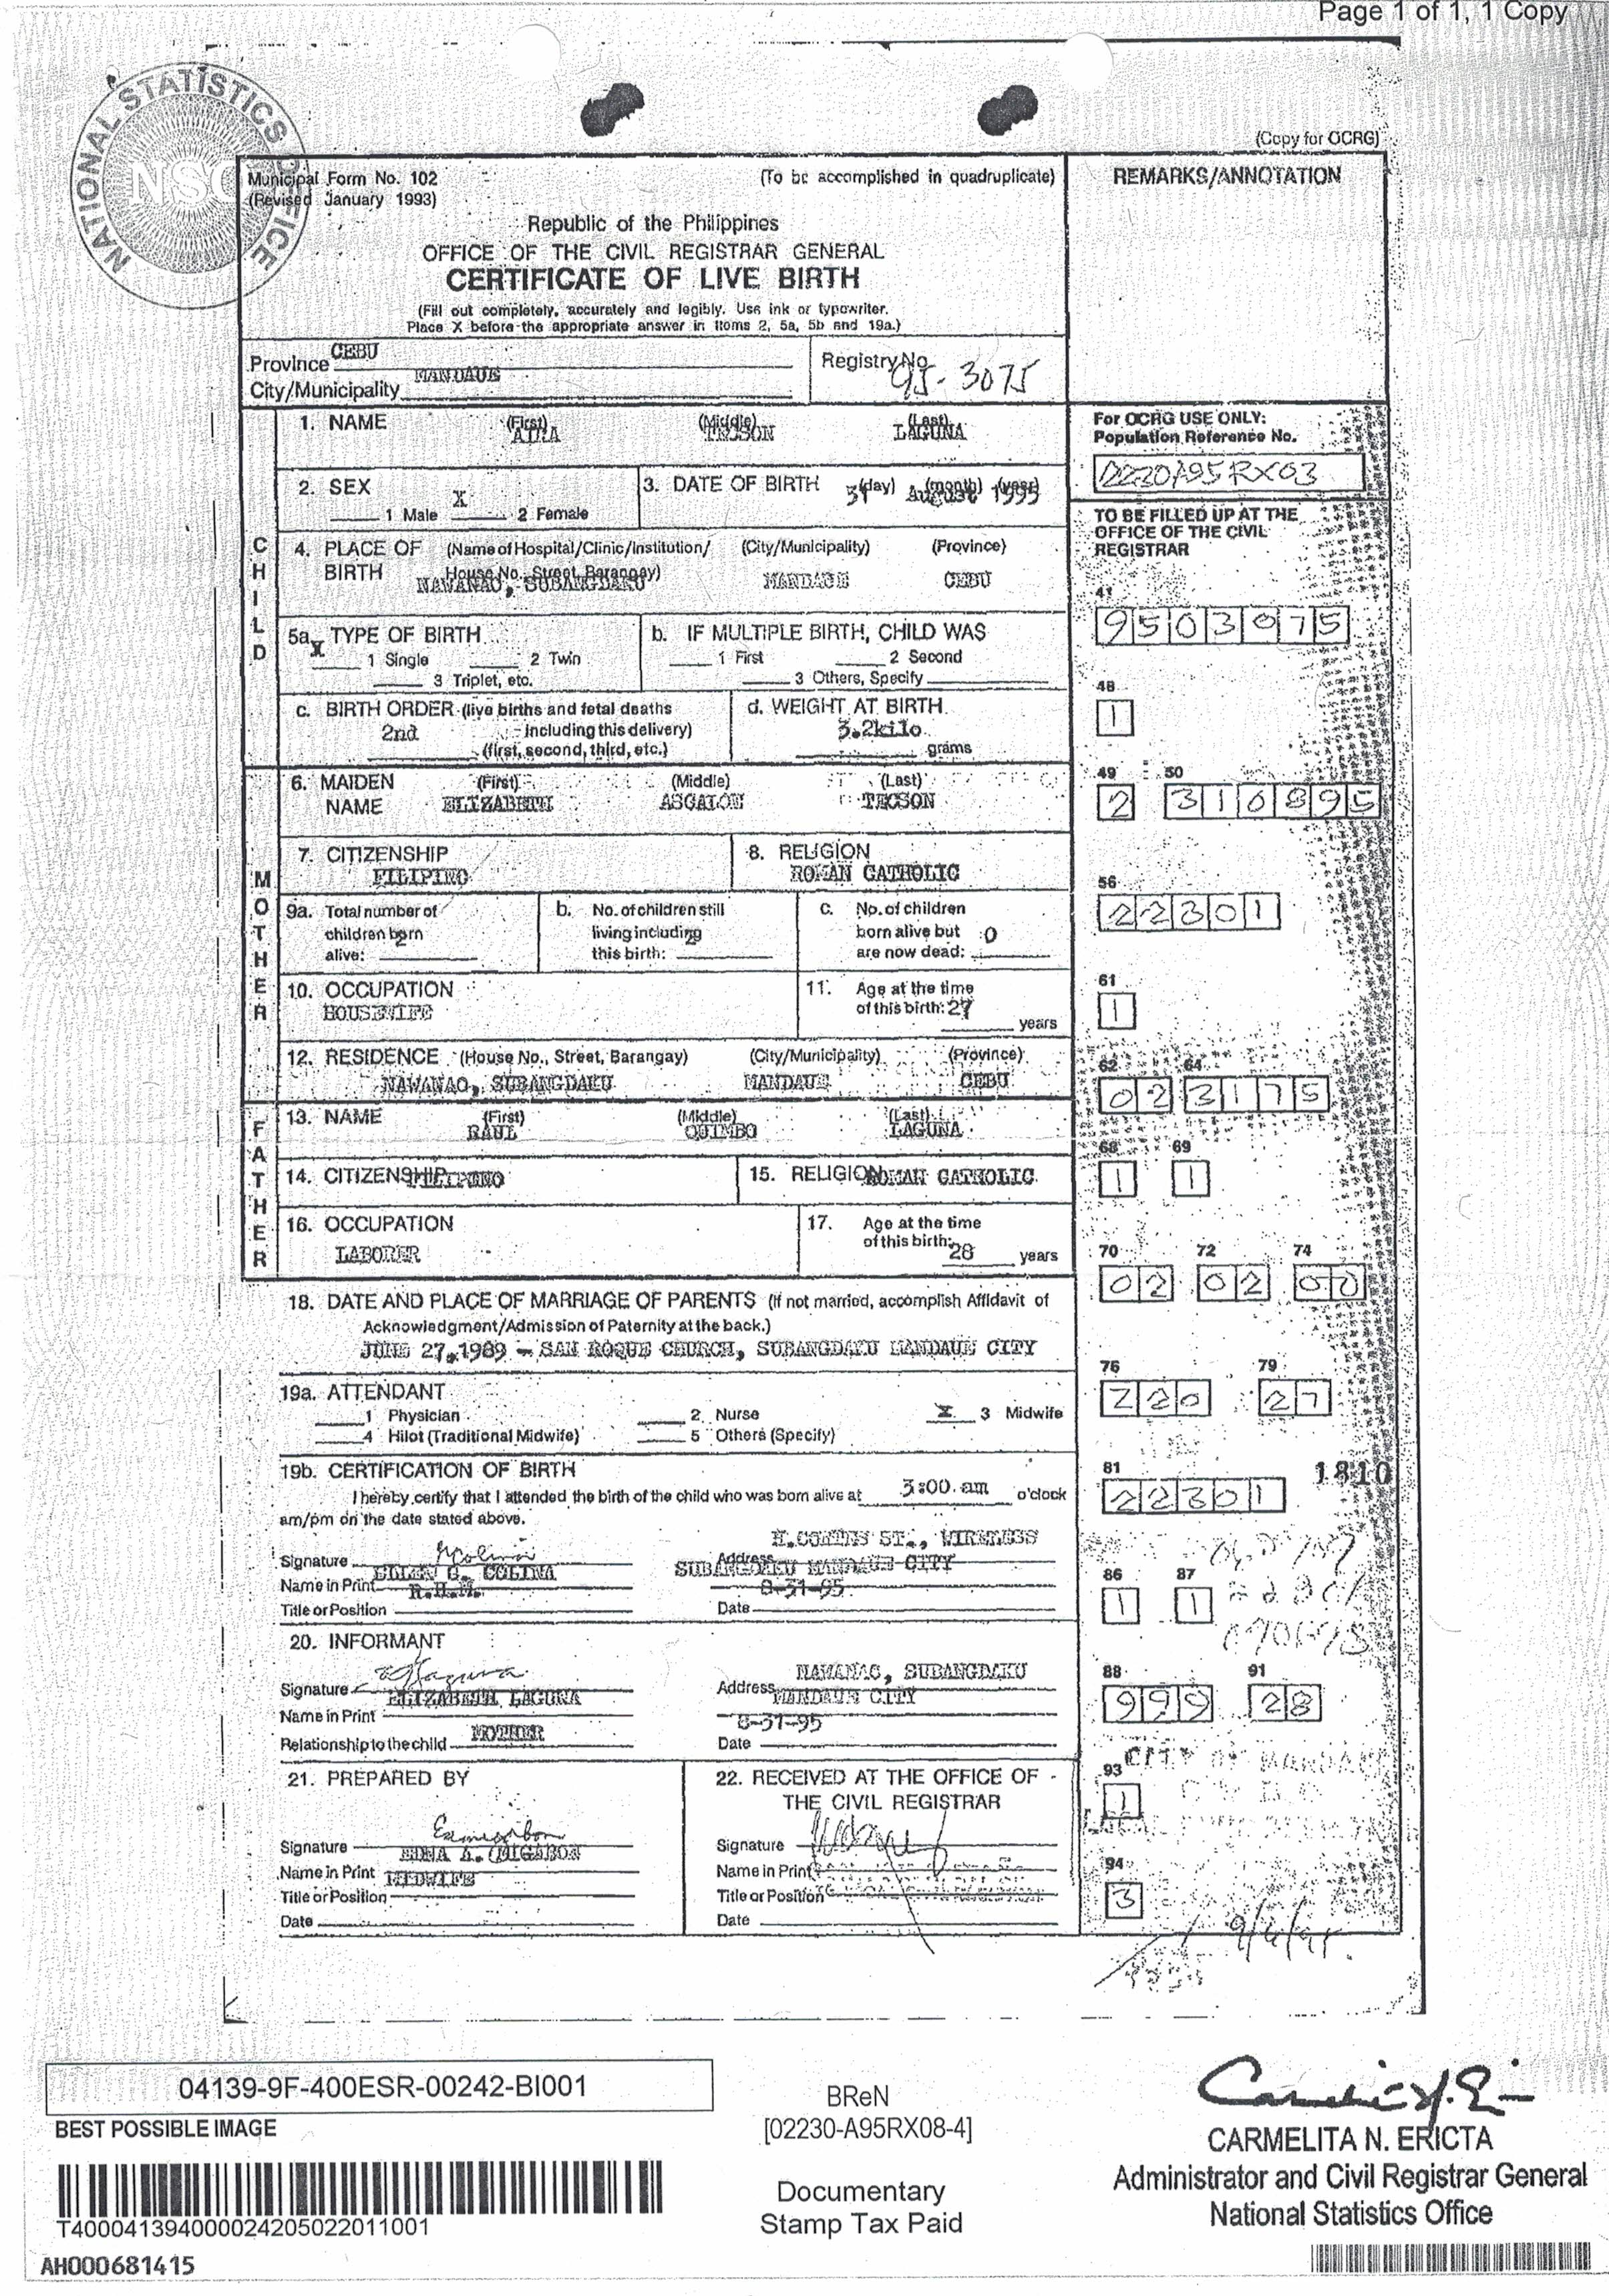 Page 1 of 1, 1 Copy
NATIONAL STATISTICS OFFICE
NSO
(Copy for OCRG)
Municipal Form No. 102
(To be accomplished in quadruplicate)
(Revised January 1993)
Republic of the Philippines
OFFICE OF THE CIVIL REGISTRAR GENERAL
CERTIFICATE OF LIVE BIRTH
(Fill out completely, accurately and legibly. Use ink or typewriter.
Place X before the appropriate answer in Items 2, 5a, 5b and 19a.)
REMARKS/ANNOTATION
Province CEBU
City/Municipality MANDAUE
Registry No. 95-3075
CHILD
1. NAME (First) (Middle) (Last)
TECSON LAGUNA
2. SEX
1 Male X 2 Female
3. DATE OF BIRTH (day) (month) (year)
31 August 1995
4. PLACE OF BIRTH (Name of Hospital/Clinic/Institution/ House No., Street, Barangay) (City/Municipality) (Province)
NAWANAO, SUBANGDAKU MANDAUE CEBU
5a. TYPE OF BIRTH
X 1 Single 2 Twin
3 Triplet, etc.
b. IF MULTIPLE BIRTH, CHILD WAS
1 First 2 Second
3 Others, Specify
c. BIRTH ORDER (live births and fetal deaths
2nd including this delivery)
(first, second, third, etc.)
d. WEIGHT AT BIRTH
3.2kilo
grams
MOTHER
6. MAIDEN NAME (First) (Middle) (Last)
ELIZABETH ASGALON TECSON
7. CITIZENSHIP
FILIPINO
8. RELIGION
ROMAN CATHOLIC
9a. Total number of children born alive: 2
b. No. of children still living including this birth: 2
c. No. of children born alive but are now dead: 0
10. OCCUPATION
HOUSEWIFE
11. Age at the time of this birth: 27 years
12. RESIDENCE (House No., Street, Barangay) (City/Municipality) (Province)
NAWANAO, SUBANGDAKU MANDAUE CEBU
FATHER
13. NAME (First) (Middle) (Last)
RAUL QUIMBO LAGUNA
14. CITIZENSHIP FILIPINO
15. RELIGION ROMAN CATHOLIC
16. OCCUPATION
LABORER
17. Age at the time of this birth: 28 years
18. DATE AND PLACE OF MARRIAGE OF PARENTS (If not married, accomplish Affidavit of
Acknowledgment/Admission of Paternity at the back.)
JUNE 27, 1989 - SAN ROQUE CHURCH, SUBANGDAKU MANDAUE CITY
19a. ATTENDANT
1 Physician 2 Nurse X 3 Midwife
4 Hilot (Traditional Midwife) 5 Others (Specify)
19b. CERTIFICATION OF BIRTH
I hereby certify that I attended the birth of the child who was born alive at 3:00 am o'clock
am/pm on the date stated above.
Signature
Name in Print ELLEN G. COLINA
Title or Position R.H.M.
ST., WIRELESS
Address SUBANGDAKU MANDAUE CITY
Date 8-31-95
20. INFORMANT
Signature
Name in Print ELIZABETH LAGUNA
Relationship to the child MOTHER
NAWANAO, SUBANGDAKU
Address MANDAUE CITY
Date 8-31-95
21. PREPARED BY
Signature
Name in Print EDNA A.
Title or Position MIDWIFE
Date
22. RECEIVED AT THE OFFICE OF
THE CIVIL REGISTRAR
Signature
Name in Print
Title or Position
Date
For OCRG USE ONLY:
Population Reference No.
TO BE FILLED UP AT THE
OFFICE OF THE CIVIL
REGISTRAR
41
9503075
48
1
49 50
2 310895
56
22301
61
1
62 64
02 3175
68 69
1 1
70 72 74
02 02 00
76 79
220 27
81
22301
1810
86 87
1 1
88 91
999 28
93
1
94
3
04139-9F-400ESR-00242-BI001
BEST POSSIBLE IMAGE
T400041394000024205022011001
AH000681415
BReN
[02230-A95RX08-4]
Documentary
Stamp Tax Paid
CARMELITA N. ERICTA
Administrator and Civil Registrar General
National Statistics Office